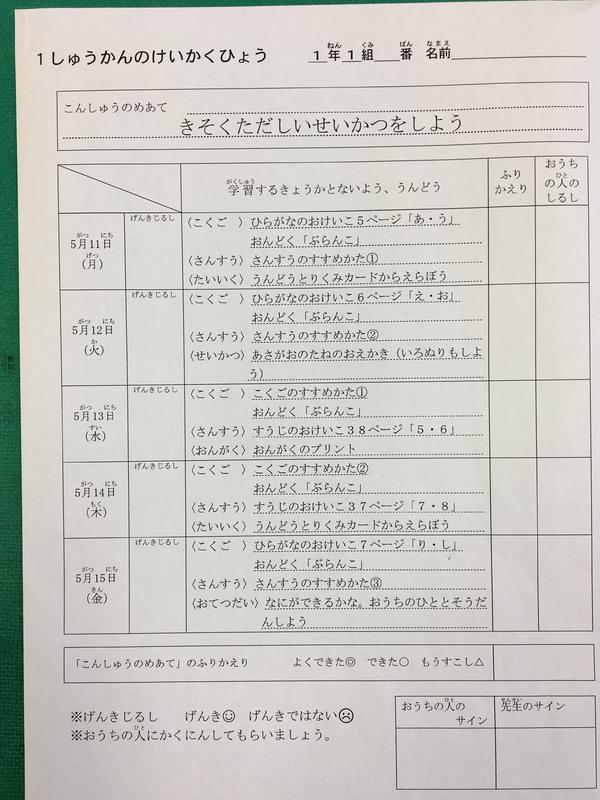 １しゅうかんのけいかくひょう　１年１組　番　名前
ねん　くみ　ばん　なまえ
こんしゅうのめあて
きそくただしいせいかつをしよう
学習するきょうかとないよう、うんどう
がくしゅう
ふりかえり
おうちの人のしるし
ひと
5月11日（月）
がつ　にち　げつ
げんきじるし
〈こくご　〉ひらがなのおけいこ５ページ「あ・う」
おんどく「ぶらんこ」
〈さんすう〉さんすうのすすめかた①
〈たいいく〉うんどうとりくみカードからえらぼう
5月12日（火）
がつ　にち　か
げんきじるし
〈こくご　〉ひらがなのおけいこ６ページ「え・お」
おんどく「ぶらんこ」
〈さんすう〉さんすうのすすめかた②
〈せいかつ〉あさがおのたねのおえかき（いろぬりもしよ
う）
5月13日（水）
がつ　にち　すい
げんきじるし
〈こくご　〉こくごのすすめかた①
おんどく「ぶらんこ」
〈さんすう〉すうじのおけいこ３８ページ「５・６」
〈おんがく〉おんがくのプリント
5月14日（木）
がつ　にち　もく
げんきじるし
〈こくご　〉こくごのすすめかた②
おんどく「ぶらんこ」
〈さんすう〉すうじのおけいこ３７ページ「７・８」
〈たいいく〉うんどうとりくみカードからえらぼう
5月15日（金）
がつ　にち　きん
げんきじるし
〈こくご　〉ひらがなのおけいこ７ページ「り・し」
おんどく「ぶらんこ」
〈さんすう〉さんすうのすすめかた③
〈おてつだい〉なにができるかな。おうちのひととそうだ
んしよう
「こんしゅうのめあて」のふりかえり　よくできた◎　できた○　もうすこし△
※げんきじるし　げんき☺　げんきではない☹
※おうちの人にかくにんしてもらいましょう。
ひと
おうちの人の
サイン
ひと
先生のサイン
せんせい